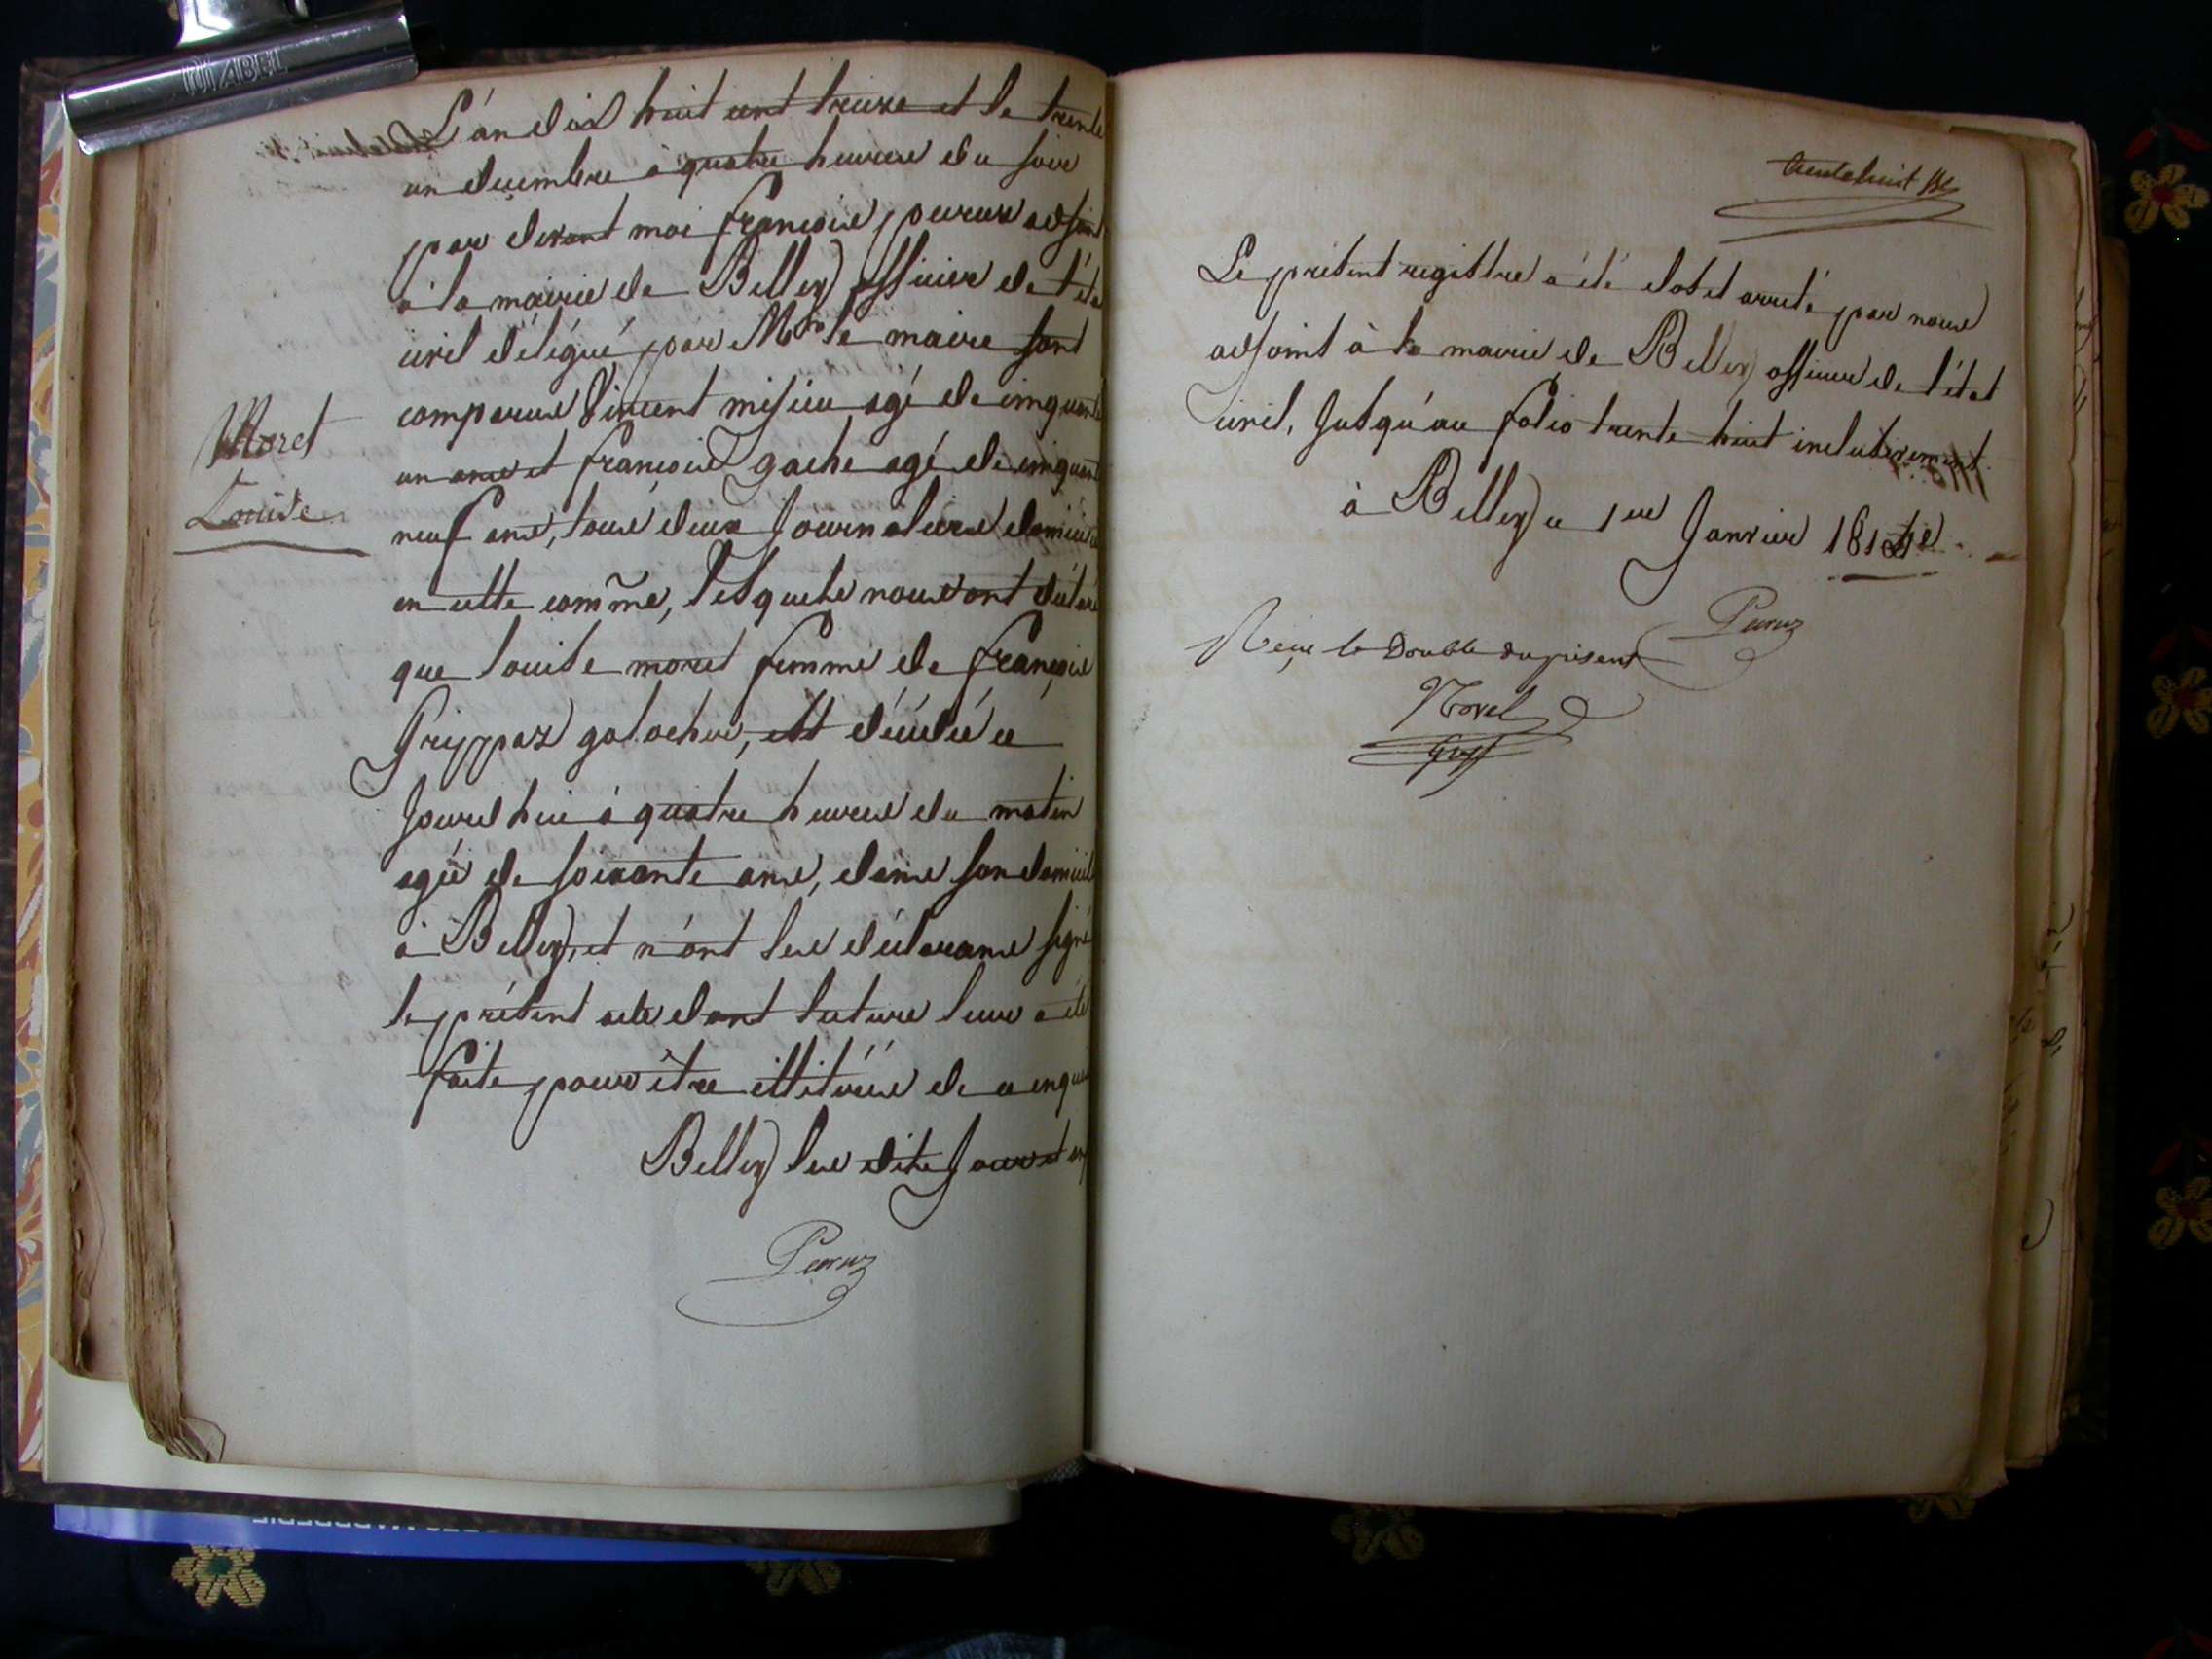 RIABEL
L'an dix huit cent treize et le trente
un decembre à quatre heures du soir
par devant moi françois peruz adjoint
à la mairie de Belley officier de l'état
civil délégué par Mr le maire sont
comparus Vincent misieu agé de cinquante
un ans et françois gache agé de cinquante
neuf ans, tous deux Journaliers domiciliés
Moret
Louise
en cette comm̃e, lesquels nous ont déclaré
que louise moret femme de françois
Grippaz galochier, est décédée ce
Jourd'hui à quatre heures du matin
agée de soixante ans, dans son domicile
à Belley, et n'ont les déclarans signé
le présent acte dont lecture leur a été
faite pour être illitérés de ce enquis
Belley les dits Jour et an
Peruz
trente huit
Le présent registtre a été clos et arrêté par nous
adjoint à la mairie de Belley officier de l'état
civil, Jusqu'au folio trente huit inclusivement.
à Belley ce 1er Janvier 1814
Peruz
Reçu le Double du présent